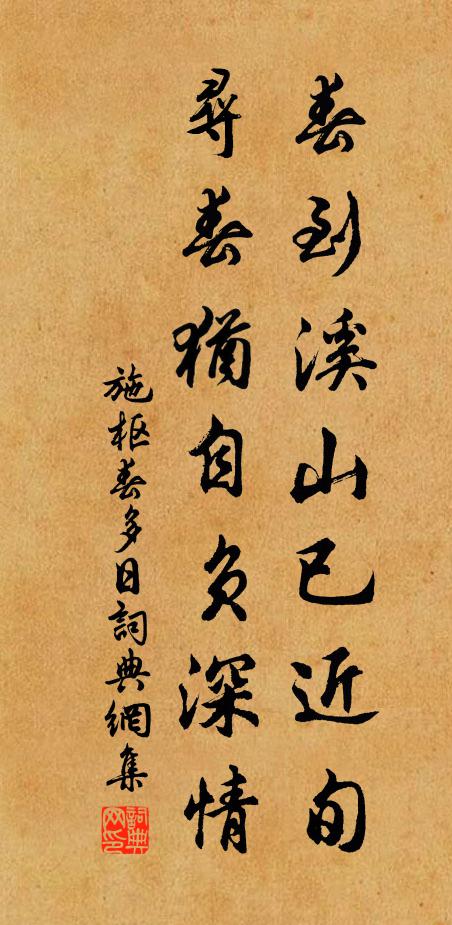 春到溪山已近旬
尋春猶自負深情
施枢春多日詞典網集
詞典网印